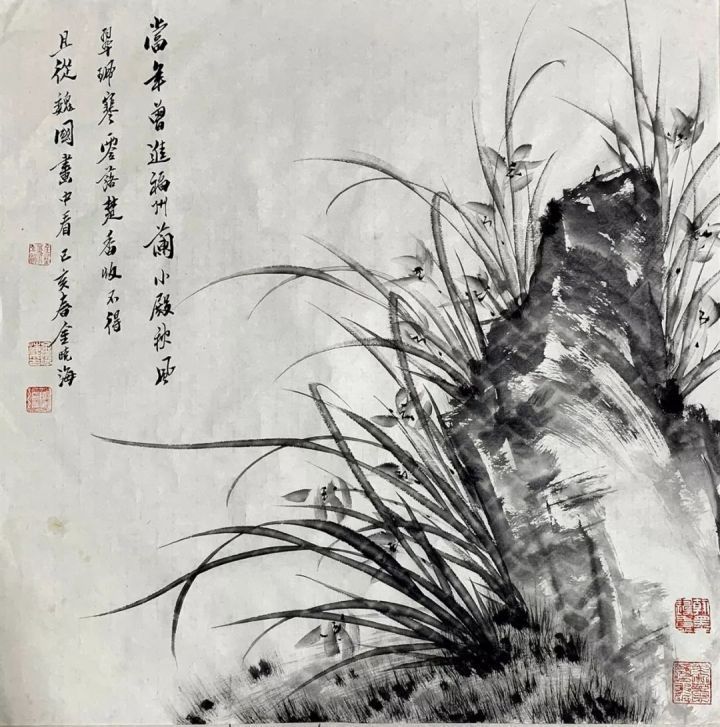 當年曾進福州蘭小殿秋風
翠珮寒零落楚香收不得
且從魏國畫中看己亥春金晓海